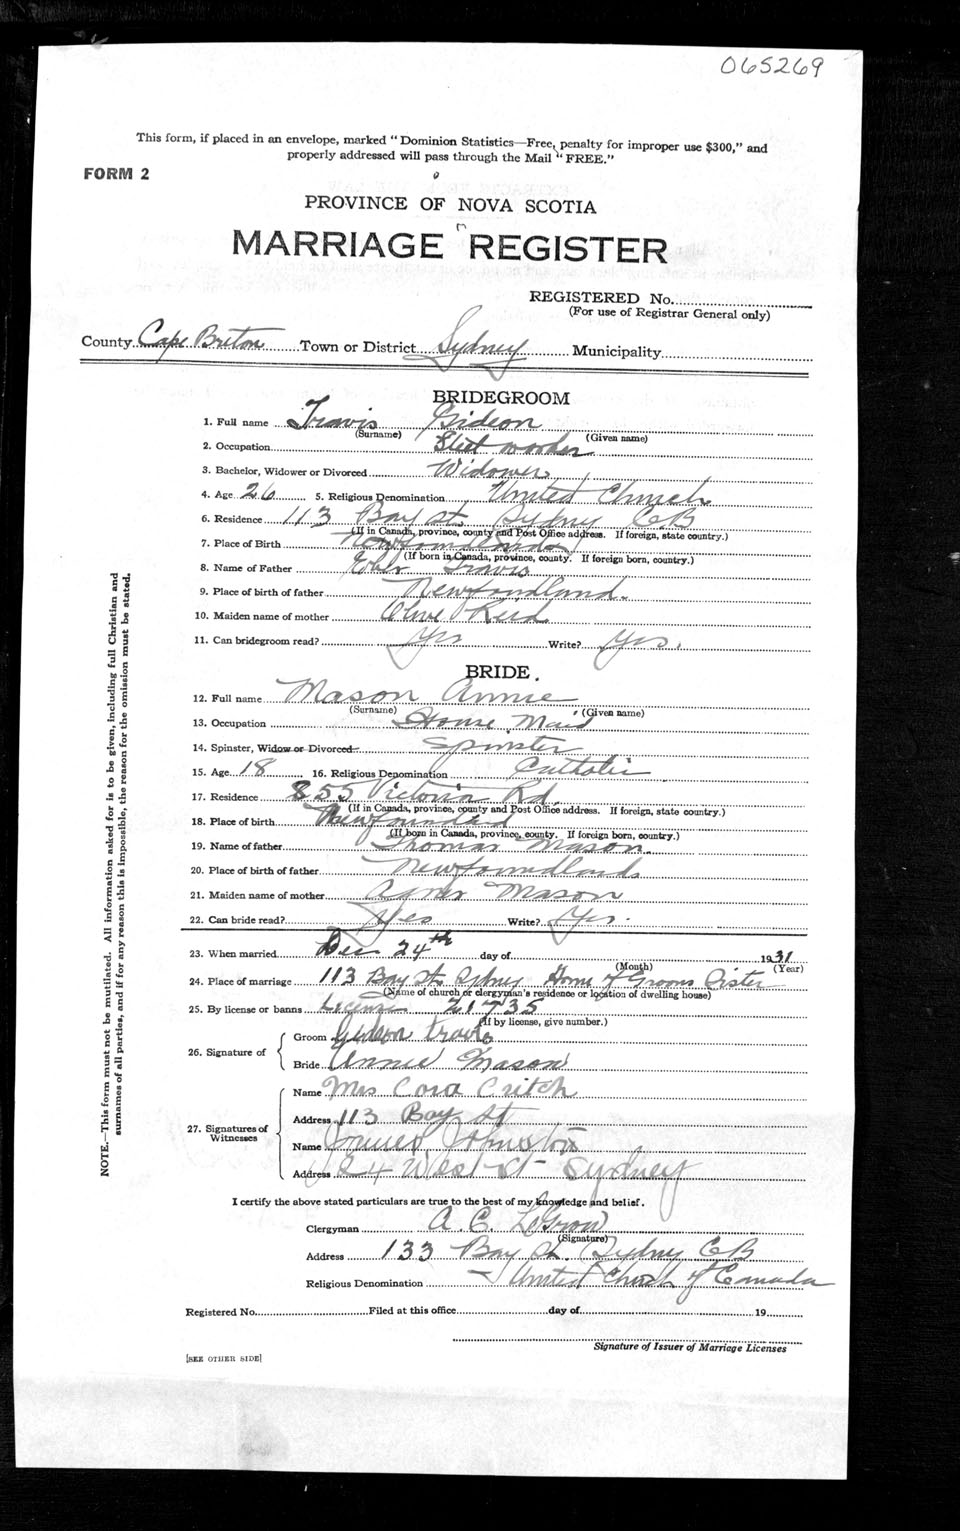 065269
This form, if placed in an envelope, marked "Dominion Statistics—Free, penalty for improper use $300," and
properly addressed will pass through the Mail "FREE."
FORM 2
PROVINCE OF NOVA SCOTIA
MARRIAGE REGISTER
REGISTERED No.
(For use of Registrar General only)
County Cape Breton Town or District Sydney Municipality
BRIDEGROOM
1. Full name Travis Gideon
(Surname) (Given name)
2. Occupation Steel worker
3. Bachelor, Widower or Divorced Widower
4. Age 26 5. Religious Denomination United Church
6. Residence 113 Bay St Sydney CB
(If in Canada, province, county and Post Office address. If foreign, state country.)
7. Place of Birth Newfoundland
(If born in Canada, province, county. If foreign born, country.)
8. Name of Father Travis
9. Place of birth of father Newfoundland.
10. Maiden name of mother Olive Reid
11. Can bridegroom read? Yes Write? Yes.
BRIDE.
12. Full name Mason Annie
(Surname) (Given name)
13. Occupation House Maid
14. Spinster, Widow or Divorced Spinster
15. Age 18 16. Religious Denomination Catholic
17. Residence 855 Victoria Rd.
(If in Canada, province, county and Post Office address. If foreign, state country.)
18. Place of birth Newfoundland
(If born in Canada, province, county. If foreign born, country.)
19. Name of father Thomas Mason
20. Place of birth of father Newfoundland
21. Maiden name of mother Agnes Mason
22. Can bride read? Yes Write? Yes.
23. When married Dec 24th day of 1931
(Month) (Year)
24. Place of marriage 113 Bay St. Sydney Home of Grooms Sister
(Name of church or clergyman's residence or location of dwelling house)
25. By license or banns License 21735
(If by license, give number.)
26. Signature of
Groom Gideon Travis
Bride Annie Mason
27. Signatures of Witnesses
Name Mrs Cora Critch
Address 113 Bay St
Name Johnston
Address 124 West St Sydney
I certify the above stated particulars are true to the best of my knowledge and belief.
Clergyman A. C. LeGrow
(Signature)
Address 133 Bay St. Sydney CB
Religious Denomination United Church of Canada
Registered No. Filed at this office day of 19
Signature of Issuer of Marriage Licenses
[SEE OTHER SIDE]
NOTE.—This form must not be mutilated. All information asked for is to be given, including full Christian and
surnames of all parties, and if for any reason this is impossible, the reason for the omission must be stated.